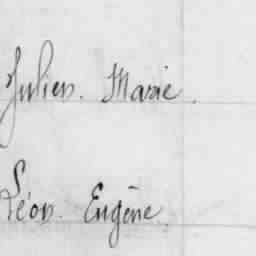 Julien. Marie.
Léon. Eugène.